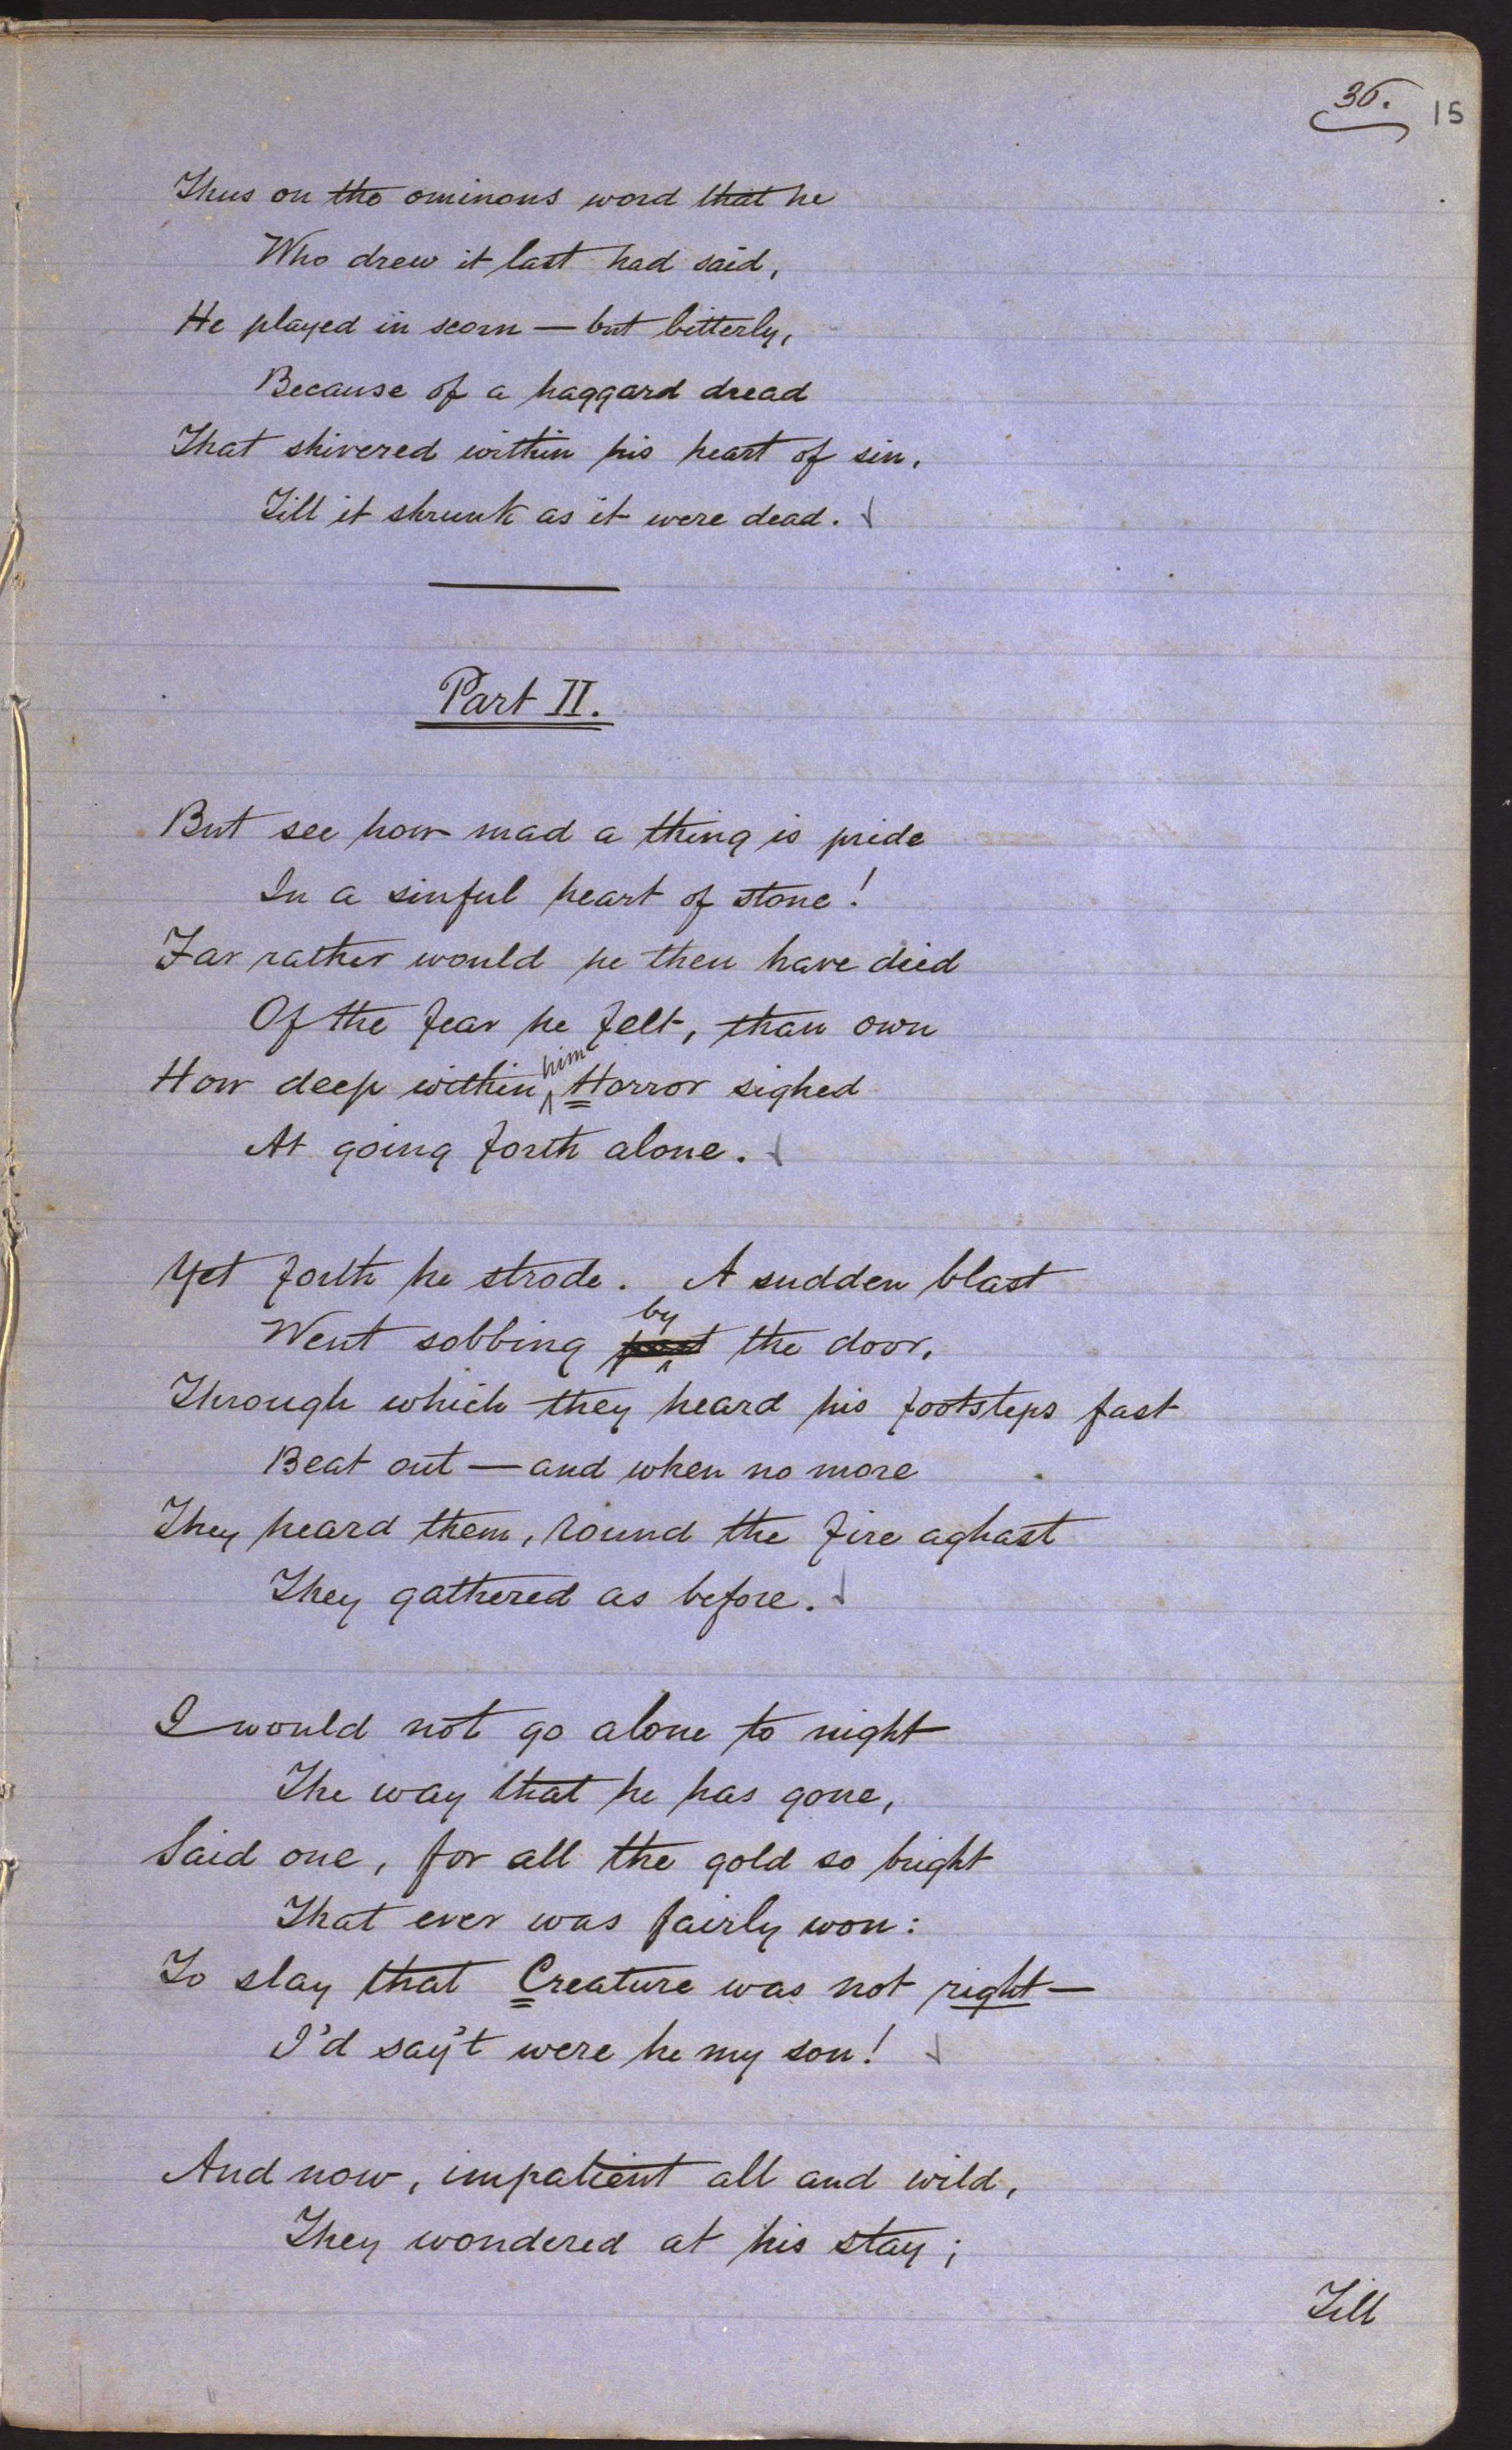 36. 15
Thus on the ominous word that he
Who drew it last had said,
He played in scorn — but bitterly,
Because of a haggard dread
That shivered within his heart of sin,
Till it shrunk as it were dead.
Part II.
But see how mad a thing is pride
In a sinful heart of stone!
Far rather would he then have died
Of the fear he felt, than own
How deep within him Horror sighed
At going forth alone.
Yet forth he strode. A sudden blast
by
Went sobbing past the door,
Through which they heard his footsteps fast
Beat out — and when no more
They heard them, round the fire aghast
They gathered as before.
I would not go alone to night
The way that he has gone,
Said one, for all the gold so bright
That ever was fairly won:
To slay that Creature was not right —
I'd say't were he my son!
And now, impatient all and wild,
They wondered at his stay;
Till